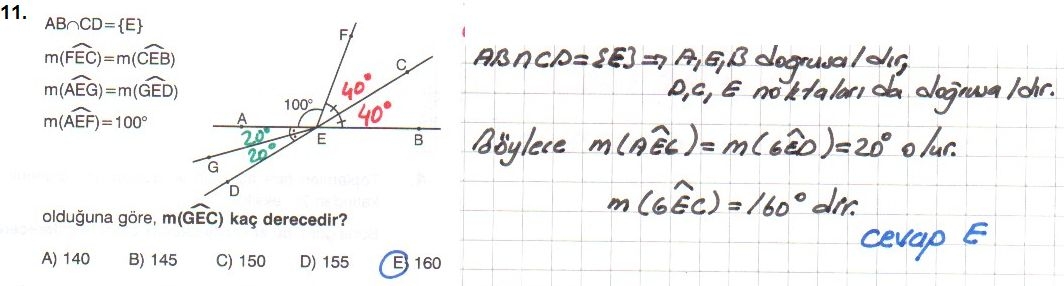 11.
AB∩CD={E}
m(FÊC)=m(CÊB)
m(AÊG)=m(GÊD)
m(AÊF)=100°
F
C
100°
40°
40°
A
20°
20°
E
B
G
D
olduğuna göre, m(GÊC) kaç derecedir?
A) 140 B) 145 C) 150 D) 155 E) 160
AB∩CD={E} ⇒ A,E,B doğrusaldır,
D,C,E noktaları da doğrusaldır.
Böylece m(AÊG)=m(GÊD)=20° olur.
m(GÊC)=160° dir.
cevap E